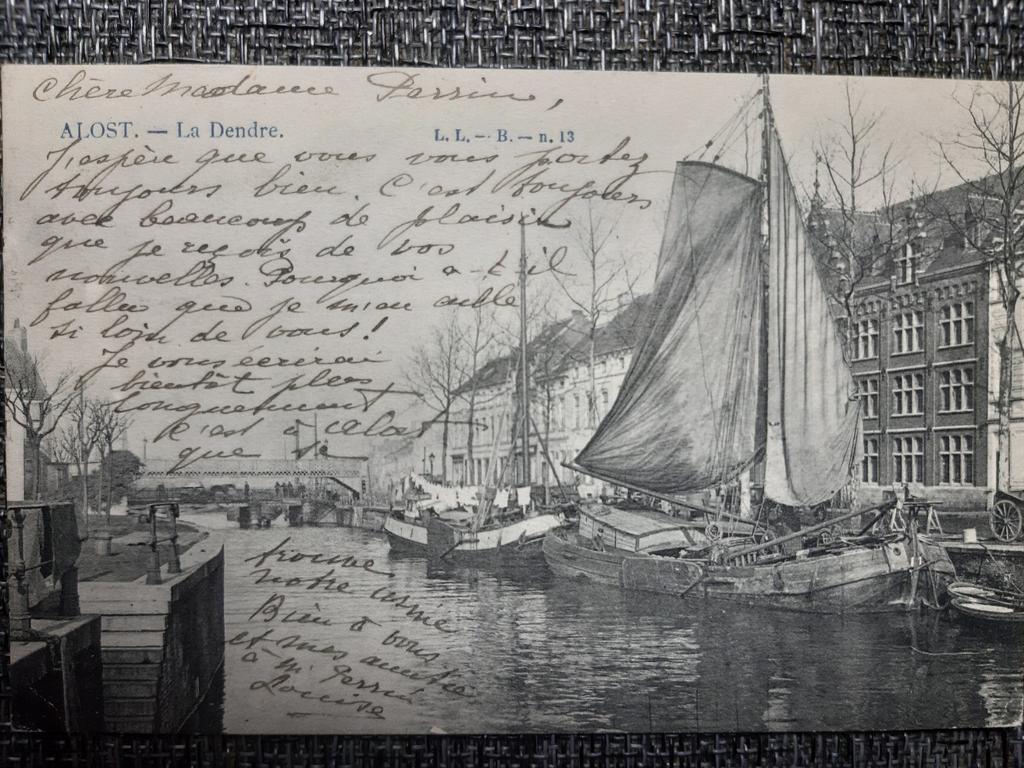 Chère Madame Perrin,
ALOST. — La Dendre.
L. L. — B. — n. 13
J'espère que vous vous portez
toujours bien. C'est toujours
avec beaucoup de plaisir
que je reçois de vos
nouvelles. Pourquoi a-t-il
fallu que je m'en aille
si loin de vous!
Je vous écrirai
bientôt plus
longuement
C'est à Alost
que se
trouve
notre usine
Bien à vous
et mes amitiés
à M. Perrin
Louise